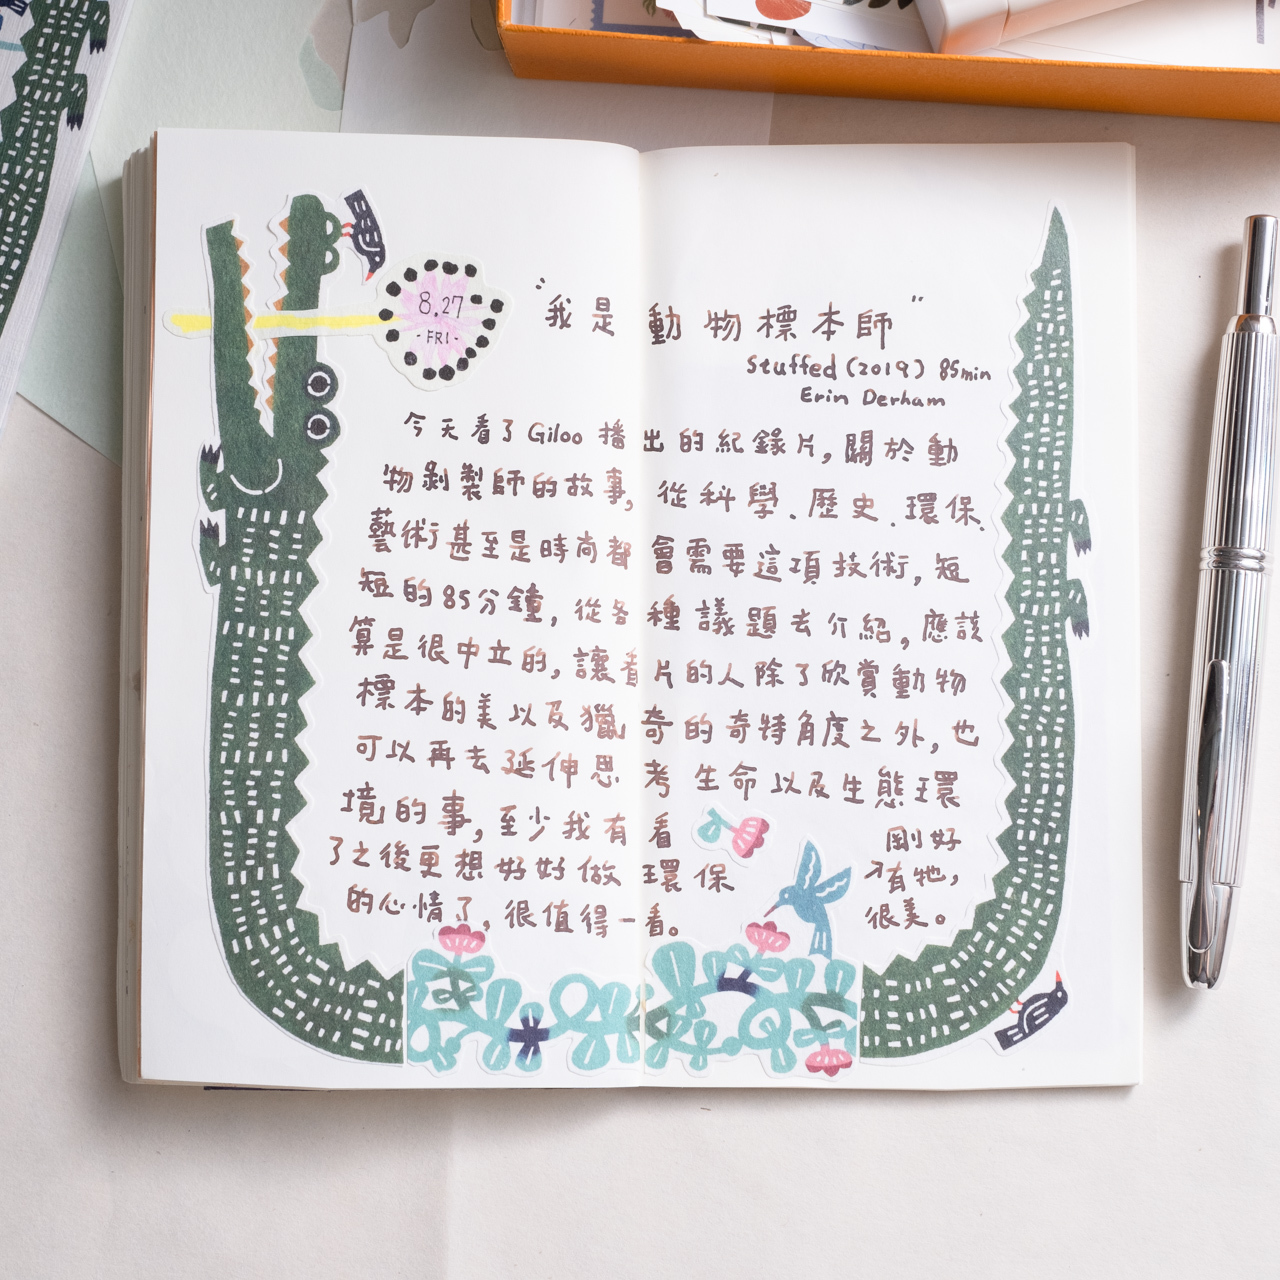 8.27
-FRI-
"我是動物標本師"
Stuffed (2019) 85min
Erin Derham
今天看了Giloo播出的紀錄片,關於動
物剝製師的故事,從科學、歷史、環保、
藝術甚至是時尚都會需要這項技術,短
短的85分鐘,從各種議題去介紹,應該
算是很中立的,讓看片的人除了欣賞動物
標本的美以及獵奇的奇特角度之外,也
可以再去延伸思考生命以及生態環
境的事,至少我有看
了之後更想好好做環保
的心情了,很值得一看。
剛好
有牠,
很美。